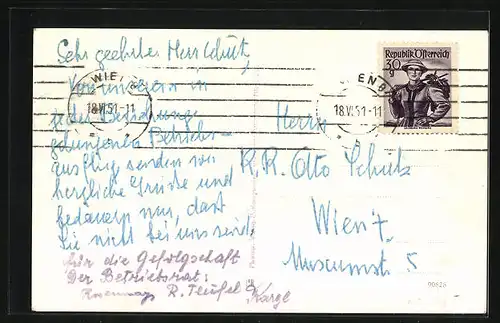 Sehr geehrter Herr Schütz,
Von unserem in
jeder Beziehung
gelungenen Betriebs-
ausflug senden wir
herzliche Grüsse und
bedauern nur, dass
Sie nicht bei uns sind.
Für die Gefolgschaft
Der Betriebsrat:
R. Teufel Kargl
WIEN
18.VI.51-11
WIEN
18.VI.51-11
Republik Österreich
30g
Herrn
K.R. Otto Schütz
Wien 7.
Museumstr. 5